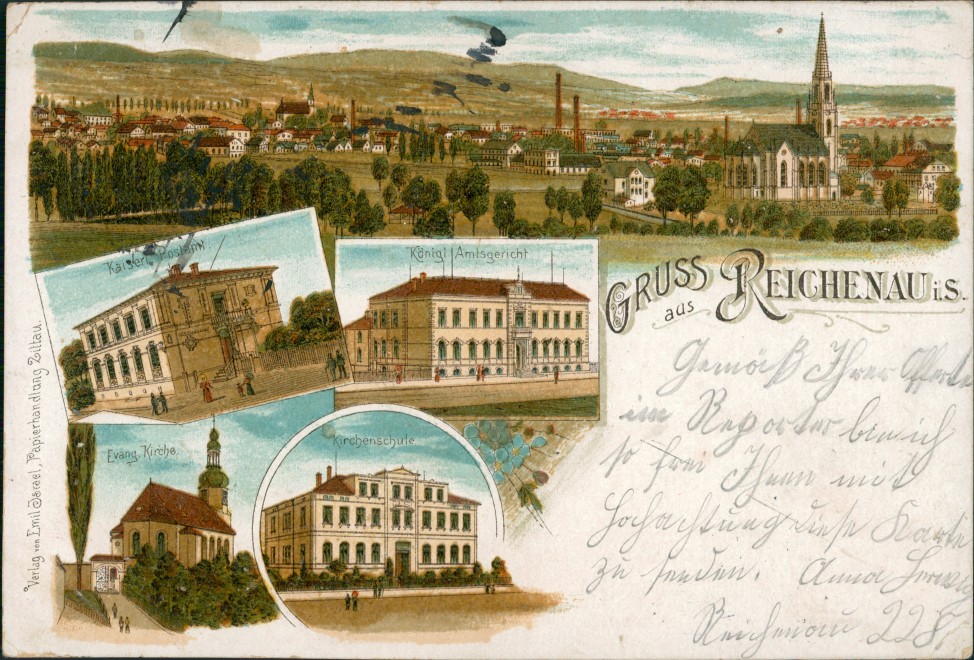 Kaiserl. Postamt
Königl. Amtsgericht
GRUSS
aus
REICHENAU i. S.
Evang. Kirche.
Kirchenschule
Verlag von Emil Israel, Papierhandlung Zittau.
Gemäß Ihrer Offerte
im Reporter bin ich
so frei Ihnen mit
Hochachtung diese Kaarte
zu senden. Anna
Reichenau 228